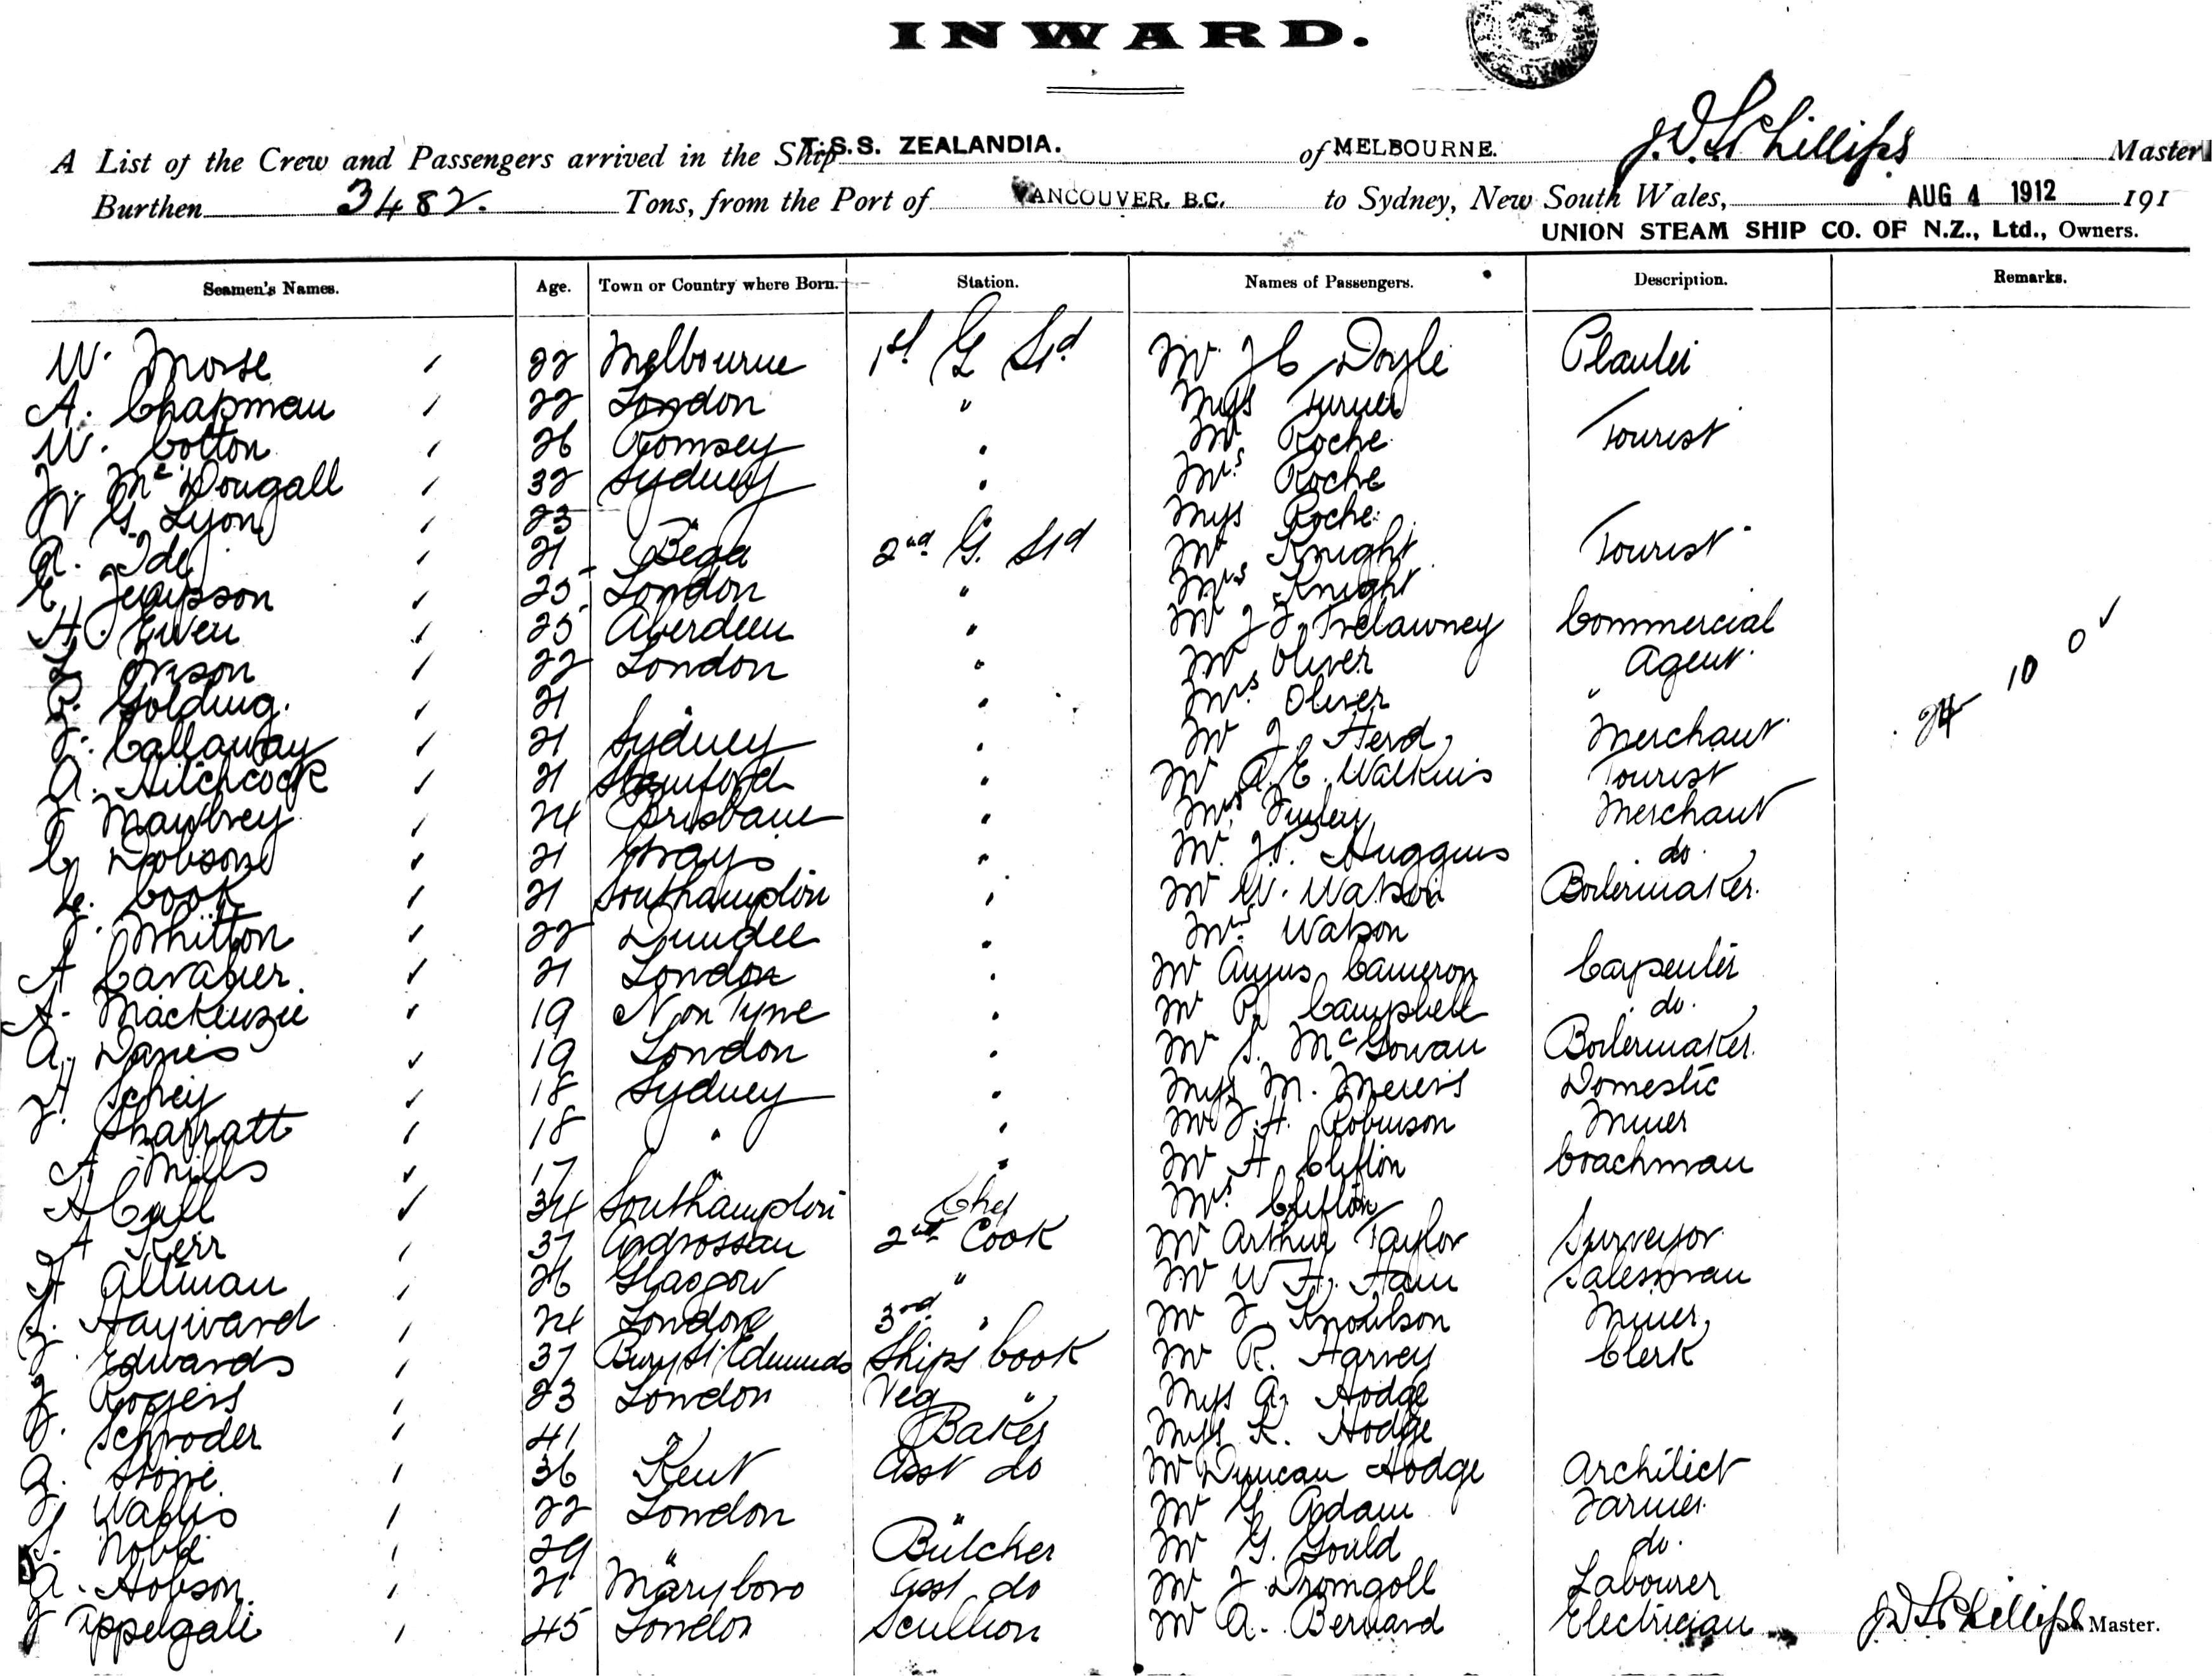 INWARD.
A List of the Crew and Passengers arrived in the Ship T.S.S. ZEALANDIA. of MELBOURNE. J.D.S. Phillips Master
Burthen 3482. Tons, from the Port of VANCOUVER, B.C. to Sydney, New South Wales, AUG 4 1912 191
UNION STEAM SHIP CO. OF N.Z., Ltd., Owners.
Seamen's Names. Age. Town or Country where Born. Station. Names of Passengers. Description. Remarks.
W. Morse 22 Melbourne 1st G Std Mr J C Doyle Planter
A. Chapman 22 London " Miss Turner
W. Cotton 26 Romsey " Mr Roche Tourist
J. McDougall 32 Sydney " Mrs Roche
W G. Lyon 23 " Miss Roche
A. Ide 21 Bega 2nd G. Std Mr Knight Tourist
E. Jeapson 25 London " Mrs Knight
H. Ewen 25 Aberdeen " Mr J J Trelawney Commercial
L. Orson 22 London " Mr Oliver Agent
P. Golding. 21 " " Mrs Oliver "
J. Callaway 21 Sydney " Mr J. Herd Merchant 24 10 0
A. Hitchcock 21 Stamford " Mr A. E. Watkins Tourist
J Mawbrey 24 Brisbane " Mrs Finley Merchant
C Dobson 21 Grays " Mr. J. Huggins do.
C. Cook 21 Southampton " Mr W. Watson Boilermaker.
J. Whitton 22 Dundee " Mrs Watson
A Cavalier. 21 London " Mr Angus Cameron Carpenter
A. Mackenzie 19 N on Tyne " Mr P. Campbell do.
A. Davies 19 London " Mr S. McGowan Boilermaker.
H Schey 18 Sydney " Miss M. Meers Domestic
J. Sharratt 18 " " Mr J. H. Robinson Miner
A. Mills 17 " " Mr A. Clifton Coachman
A Call 34 Southampton Chef Mrs. Clifton
A Kerr 37 Adrossan 2nd Cook Mr Arthur Taylor Surveyor
H Altman 26 Glasgow " Mr W H. Ham Salesman
J. Hayward 24 London 3rd " Mr J. Knowlson Miner
J. Edwards 37 Bury St. Edmunds Ships Cook Mr R. Harvey Clerk
J Rogers 23 London Veg " Miss A. Hodge
J. Schroder 41 " Baker Miss K. Hodge
A. Stone 36 Kent Asst do Mr Duncan Hodge Architect
J Wallis 22 London " Mr G Adam Farmer
J. Noble 29 " Butcher Mr G. Gould do.
A. Hobson 21 Maryboro Asst do Mr J Dromgoll Labourer
J Appelgate 45 London Scullion Mr A. Bernard Electrician J.D.S. Phillips Master.